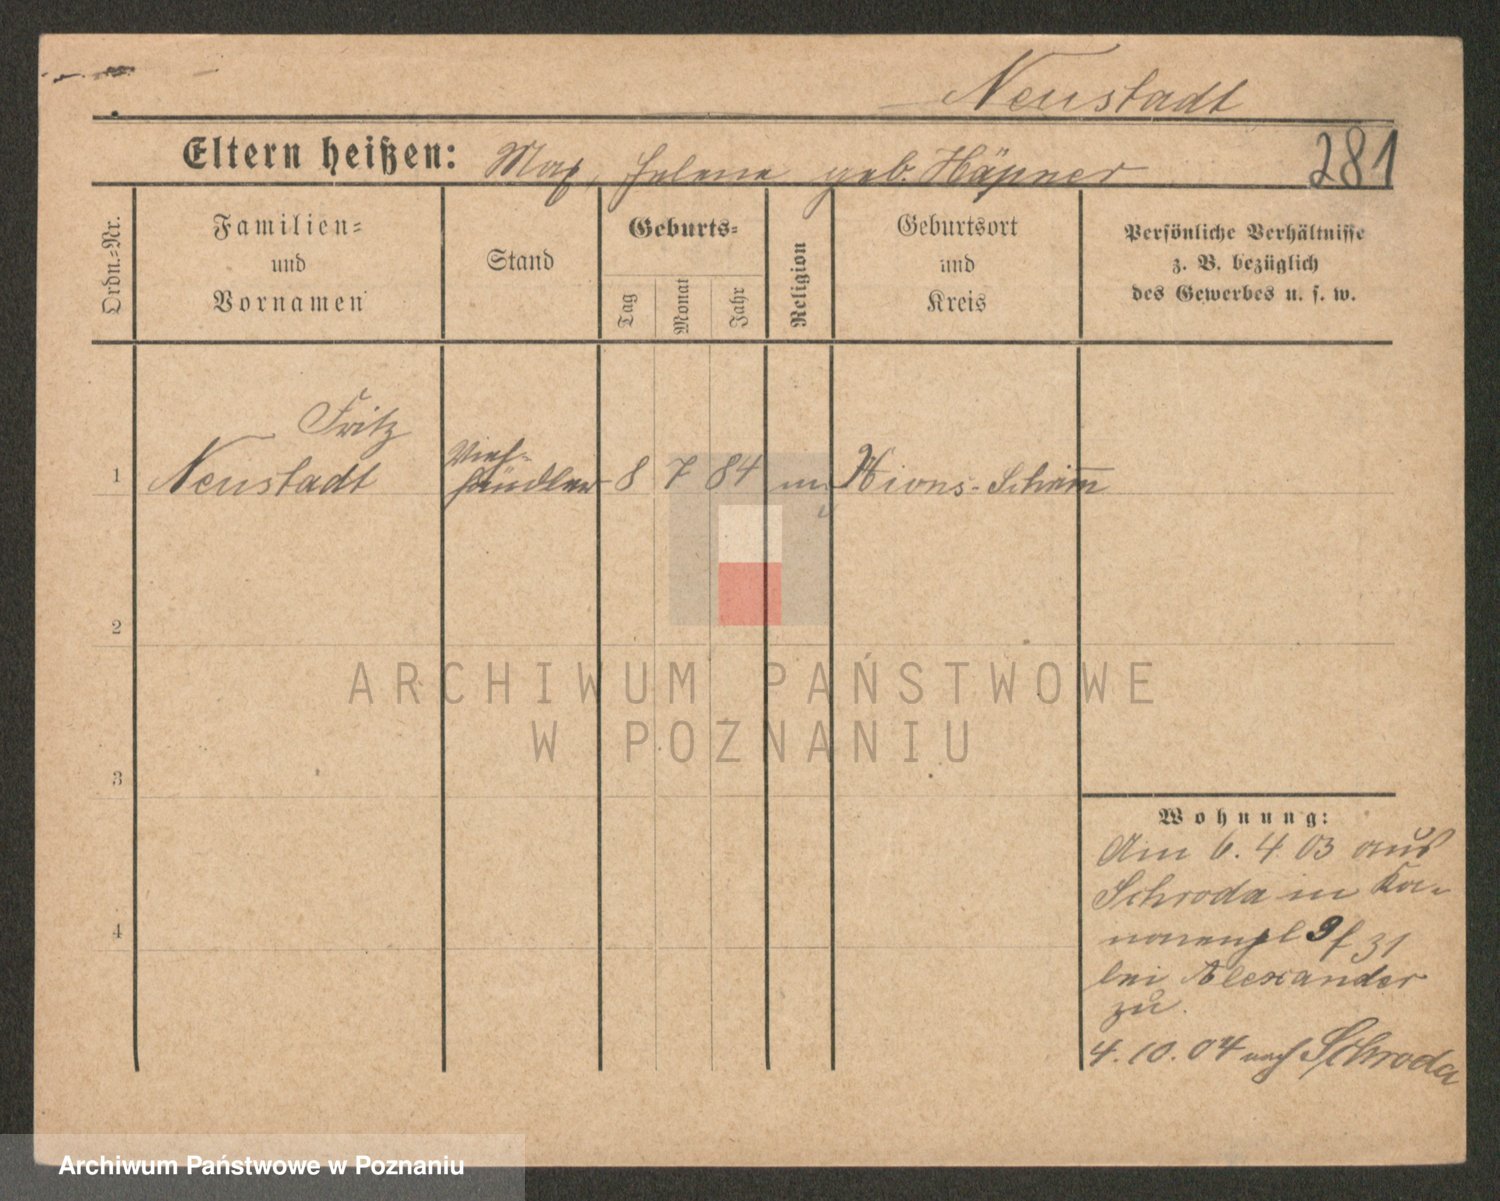 Neustadt
Eltern heißen: Max, Helene geb. Häpner
281
Ordn.-Nr.
Familien-
und
Vornamen
Stand
Geburts-
Tag
Monat
Jahr
Religion
Geburtsort
und
Kreis
Persönliche Verhältnisse
z. B. bezüglich
des Gewerbes u. s. w.
Fritz
1 Neustadt
Vieh-
händler
8 7 84
Xions - Schrimm
2
3
4
ARCHIWUM PAŃSTWOWE
W POZNANIU
Wohnung:
Am 6. 4 03 aus
Schroda in Ka-
nonenpl 9 f 31
bei Alexander
zu.
4. 10. 04 nach Schroda
Archiwum Państwowe w Poznaniu